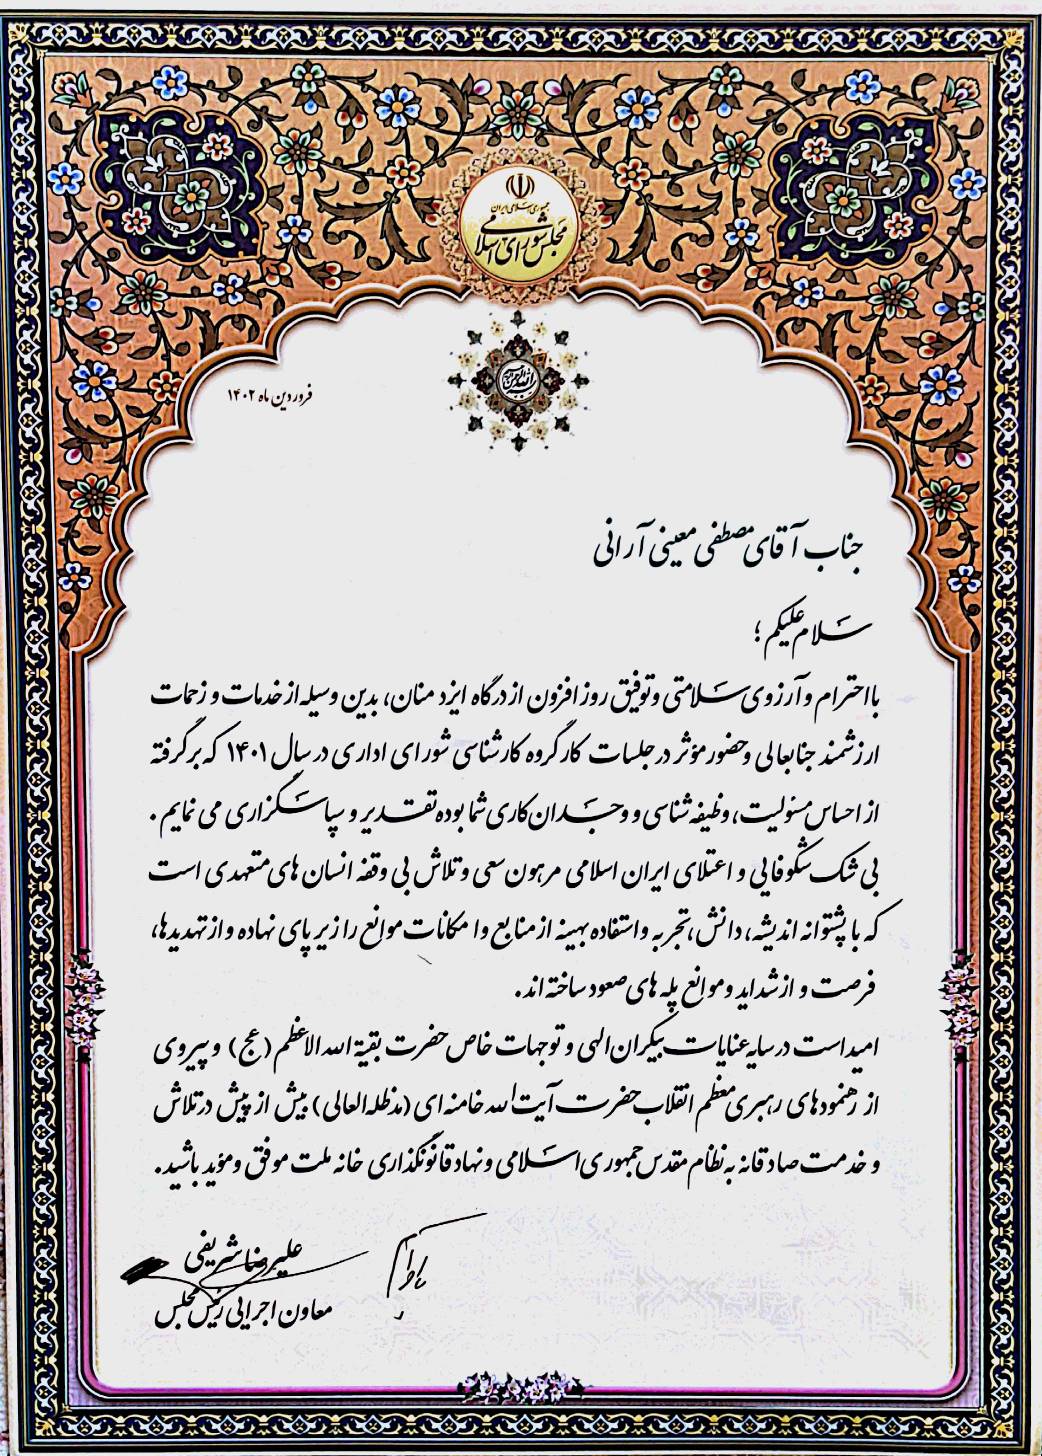 جمهوری اسلامی ایران
مجلس شورای اسلامی
فروردین ماه ۱۴۰۲
جناب آقای مصطفی معینی آرانی
سلام علیکم ؛
با احترام و آرزوی سلامتی و توفیق روز افزون از درگاه ایزد منان، بدین وسیله از خدمات و زحمات
ارزشمند جنابعالی و حضور مؤثر در جلسات کارگروه کارشناسی شورای اداری در سال ۱۴۰۱ که برگرفته
از احساس مسئولیت، وظیفه شناسی و وجدان کاری شما بوده تقدیر و سپاسگزاری می نمایم .
بی شک شکوفایی و اعتلای ایران اسلامی مرهون سعی و تلاش بی وقفه انسان های متعهدی است
که با پشتوانه اندیشه، دانش، تجربه و استفاده بهینه از منابع و امکانات موانع را زیر پای نهاده و از تهدیدها،
فرصت و از شداید و موانع پله های صعود ساخته اند.
امید است در سایه عنایات بیکران الهی و توجهات خاص حضرت بقیة الله الاعظم (عج) و پیروی
از رهنمودهای رهبری معظم انقلاب حضرت آیت الله خامنه ای (مدظله العالی) بیش از پیش در تلاش
و خدمت صادقانه به نظام مقدس جمهوری اسلامی و نهاد قانونگذاری خانه ملت موفق و مؤید باشید.
با احترام
علیرضا شریفی
معاون اجرایی رئیس مجلس